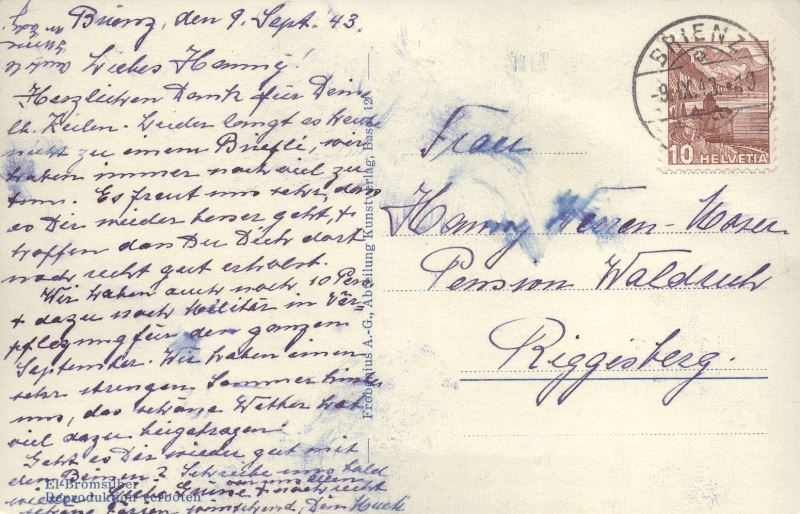 Brienz, den 9. Sept. 43.
Liebes Hanny!
Herzlichen Dank für Deine
lb. Zeilen. Leider langt es heute
nicht zu einem Briefli, wir
haben immer noch viel zu
tun. Es freut uns sehr, dass
es Dir wieder besser geht, &
hoffen dass Du Dich dort
noch recht gut erholst.
Wir haben auch noch 10 Pers.
& dazu noch Militär in Ver-
pflegung für den ganzen
September. Wir haben einen
sehr strengen Sommer hinter
uns, das schöne Wetter hat
viel dazu beigetragen.
Geht es Dir wieder gut mit
den Beinen? Schreibe uns bald
wieder. Grüsse von uns allen
& noch recht
schöne Ferien wünschend, Dein
El-Bromsilber
Reproduktion verboten
Frobenius A.-G., Abteilung Kunstverlag, Basel 12
BRIENZ
9.IX.43
10 HELVETIA
Frau
Hanny -Moser
Pension Waldruh
Riggisberg.